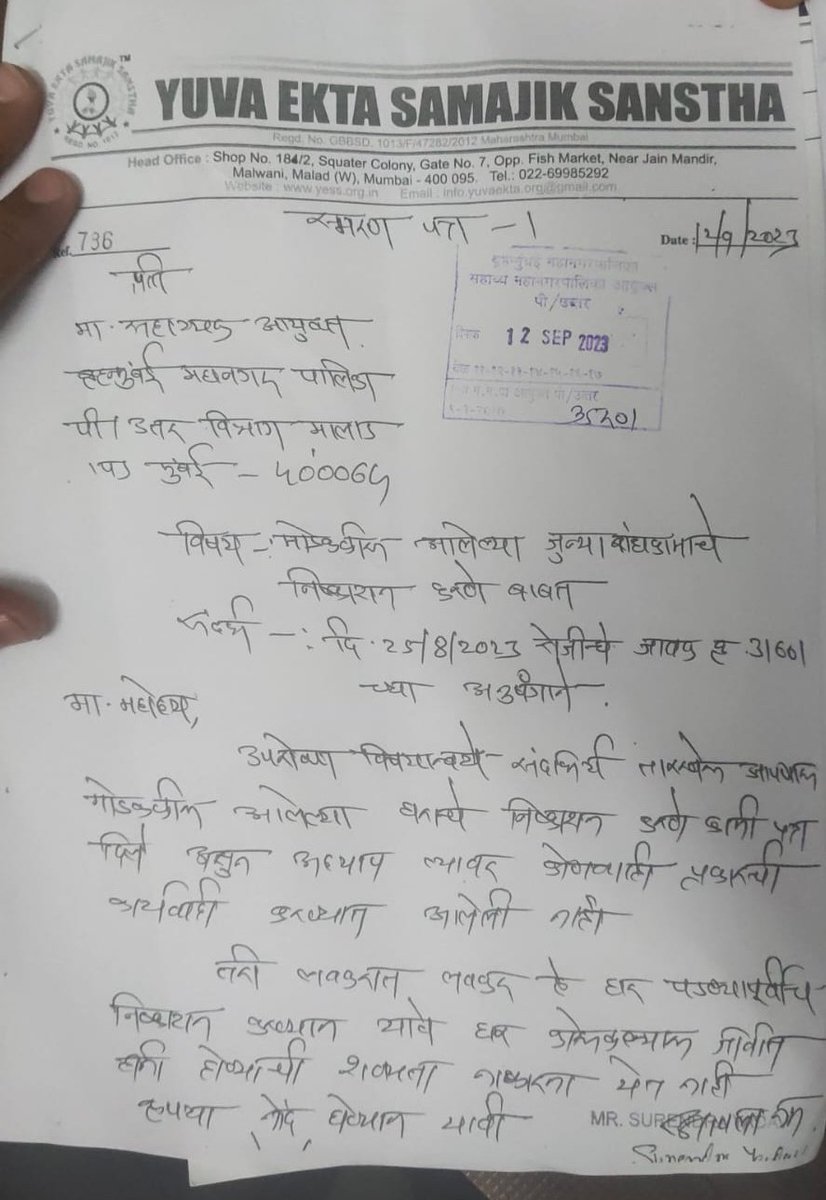 YUVA EKTA SAMAJIK SANSTHA TM
REGD NO. 1013
YUVA EKTA SAMAJIK SANSTHA
Regd. No. GBBSD. 1013/F/47282/2012 Maharashtra Mumbai
Head Office : Shop No. 184/2, Squater Colony, Gate No. 7, Opp. Fish Market, Near Jain Mandir,
Malwani, Malad (W), Mumbai - 400 095. Tel.: 022-69985292
Website : www.yess.org.in Email : info.yuvaekta.org@gmail.com
स्मरण पत्र - 1
Ref. 736
Date : 12/9/2023
प्रती
बृहन्मुंबई महानगरपालिका
सहाय्य महानगरपालिका आयुक्त
पी/उत्तर
दिनांक 12 SEP 2023
पी/उत्तर
35301
मा. सहाय्यक आयुक्त
बृहन्मुंबई महानगर पालिका
पी। उत्तर विभाग मालाड
मुंबई - 400064
विषय -: मोडकळीस आलेल्या जुन्या बांधकामाचे
निष्काशन करणे बाबत
संदर्भ -: दि. 25/8/2023 रोजीचे जावक क्र. 31601
च्या अनुषंगाने.
मा. महोदय,
उपरोक्त विषयान्वये संदर्भिय तारखेस आपणास
मोडकळीस आलेल्या घराचे निष्काशन करणे पत्र
दिले असुन अद्याप त्यावर कोणत्याही प्रकारची
कार्यवाही करण्यात आलेली नाही
तरी लवकरात लवकर हे घर पडण्यापूर्वीच
निष्काशन करण्यात यावे घर कोसळल्यास जीवित
हानी होण्याची शक्यता नाकारता येत नाही
कृपया नोंद घेण्यात यावी
MR. SURE